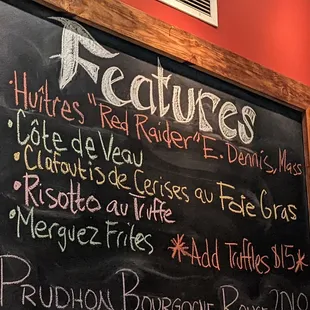 Features
• Huîtres "Red Raider" E. Dennis, Mass
• Côte de Veau
• Clafoutis de Cerises au Foie Gras
• Risotto au Truffe
• Merguez Frites
*Add Truffles $15*
PRUDHON BOURGOGNE ROUGE 2010